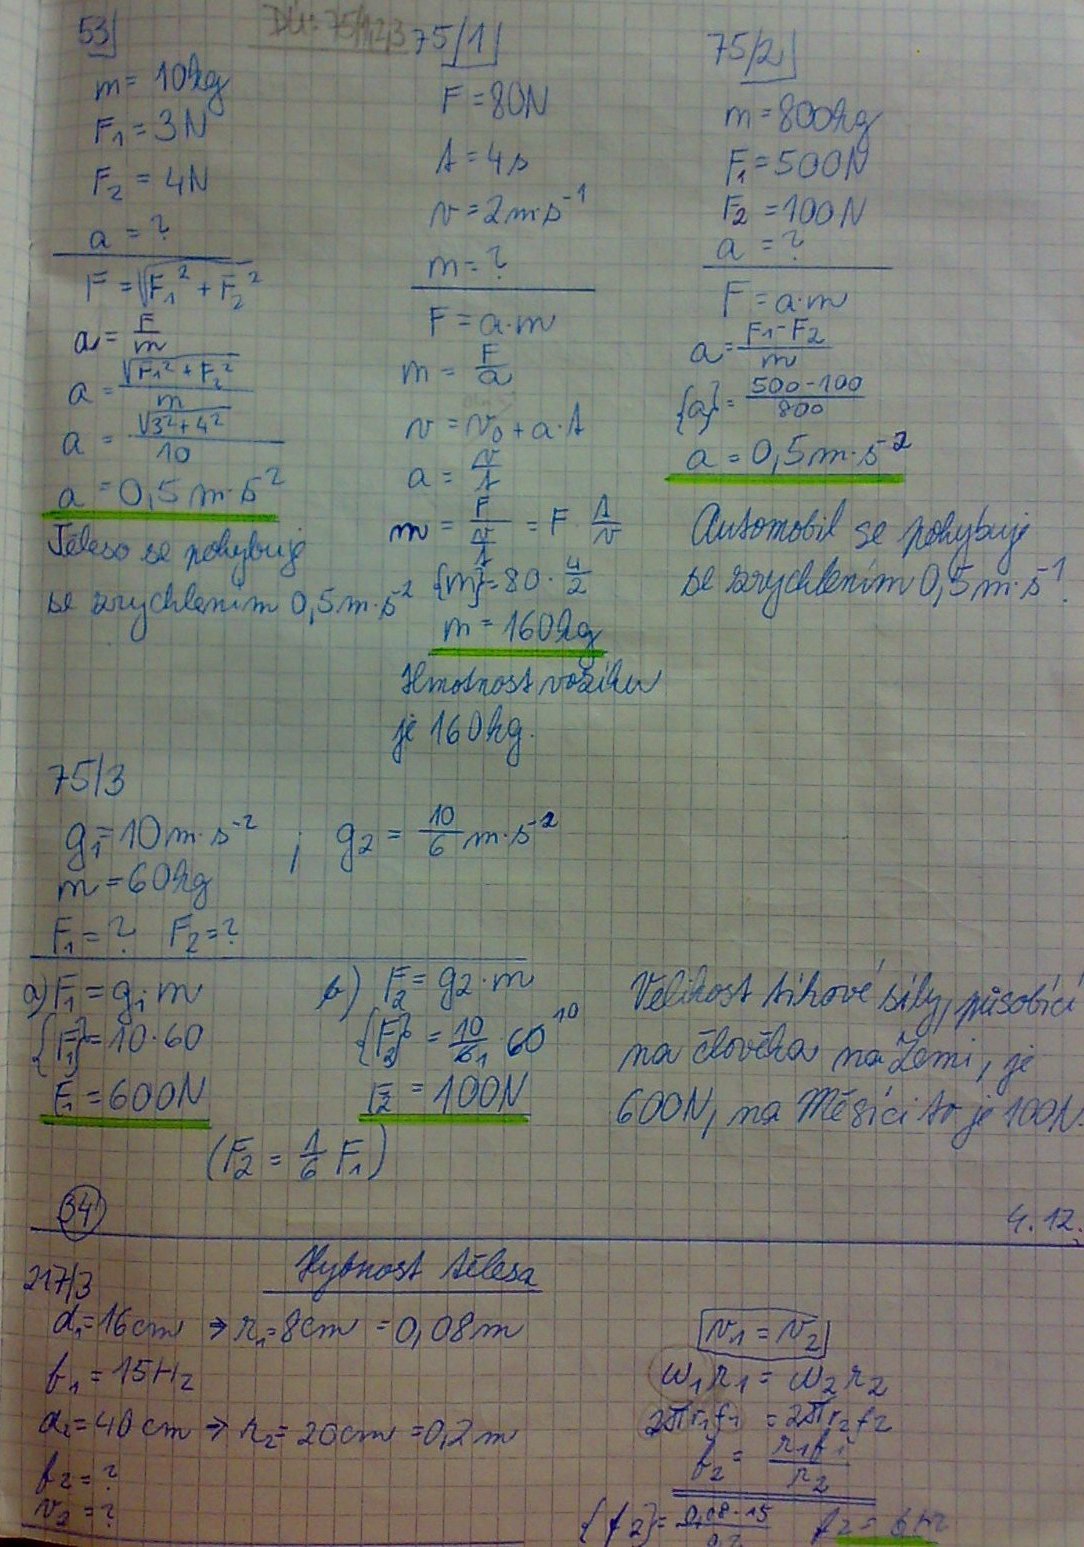 DÚ: 75/1,2,3
53
m = 10kg
F₁ = 3N
F₂ = 4N
a = ?
F = √F₁² + F₂²
a = F/m
a = √F₁² + F₂²/m
a = √3² + 4²/10
a = 0,5 m·s⁻²
Těleso se pohybuje
se zrychlením 0,5 m·s⁻²
75/1
F = 80N
t = 4s
v = 2m·s⁻¹
m = ?
F = a·m
m = F/a
v = v₀ + a·t
a = v/t
m = F/(v/t) = F · t/v
{m} = 80 · 4/2
m = 160kg
Hmotnost vozíku
je 160kg.
75/2
m = 800kg
F₁ = 500N
F₂ = 100N
a = ?
F = a·m
a = F₁ - F₂/m
{a} = 500 - 100/800
a = 0,5m·s⁻²
Automobil se pohybuje
se zrychlením 0,5m·s⁻¹.
75/3
g₁ = 10m·s⁻² ; g₂ = 10/6 m·s⁻²
m = 60kg
F₁ = ? F₂ = ?
a) F₁ = g₁·m
{F₁} = 10·60
F₁ = 600N
b) F₂ = g₂·m
{F₂} = 10/6₁ · 60¹⁰
F₂ = 100N
(F₂ = 1/6 F₁)
Velikost tíhové síly, působící
na člověka na Zemi, je
600N, na Měsíci to je 100N.
34
4.12.
Hybnost tělesa
217/3
d₁ = 16cm → r₁ = 8cm = 0,08m
f₁ = 15Hz
d₂ = 40cm → r₂ = 20cm = 0,2m
f₂ = ?
v₂ = ?
v₁ = v₂
ω₁r₁ = ω₂r₂
2πr₁f₁ = 2πr₂f₂
f₂ = r₁f₁/r₂
{f₂} = 0,08·15/0,2 f₂ = 6Hz